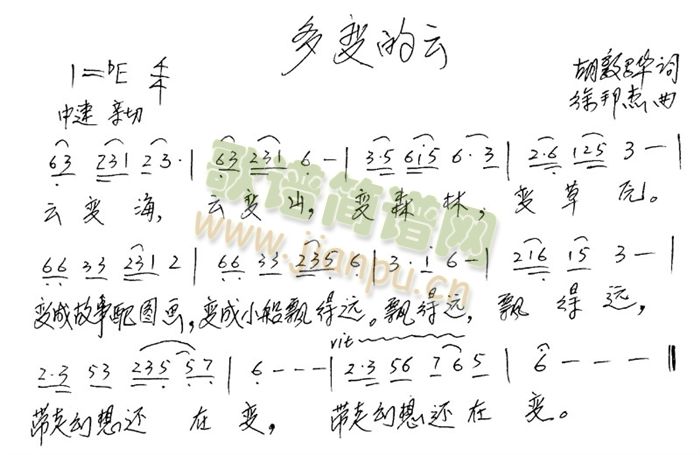 多变的云
1=♭E 4/4
胡敦华词
中速 亲切
徐邦杰曲
63 231 23·| 63 231 6 -| 3·5 615 6·3| 2·6 125 3 -|
云变海， 云变山， 变森林， 变草原。
66 33 231 2| 66 33 235 6| 3·1 6 -| 216 15 3 -|
变成故事配图画，变成小船飘得远。飘得远， 飘得远，
rit
2·3 53 235 57| 6 - - -| 2·3 56 765| 6 - - -‖
带走幻想还在变， 带走幻想还在变。
歌谱简谱网
www.jianpu.cn